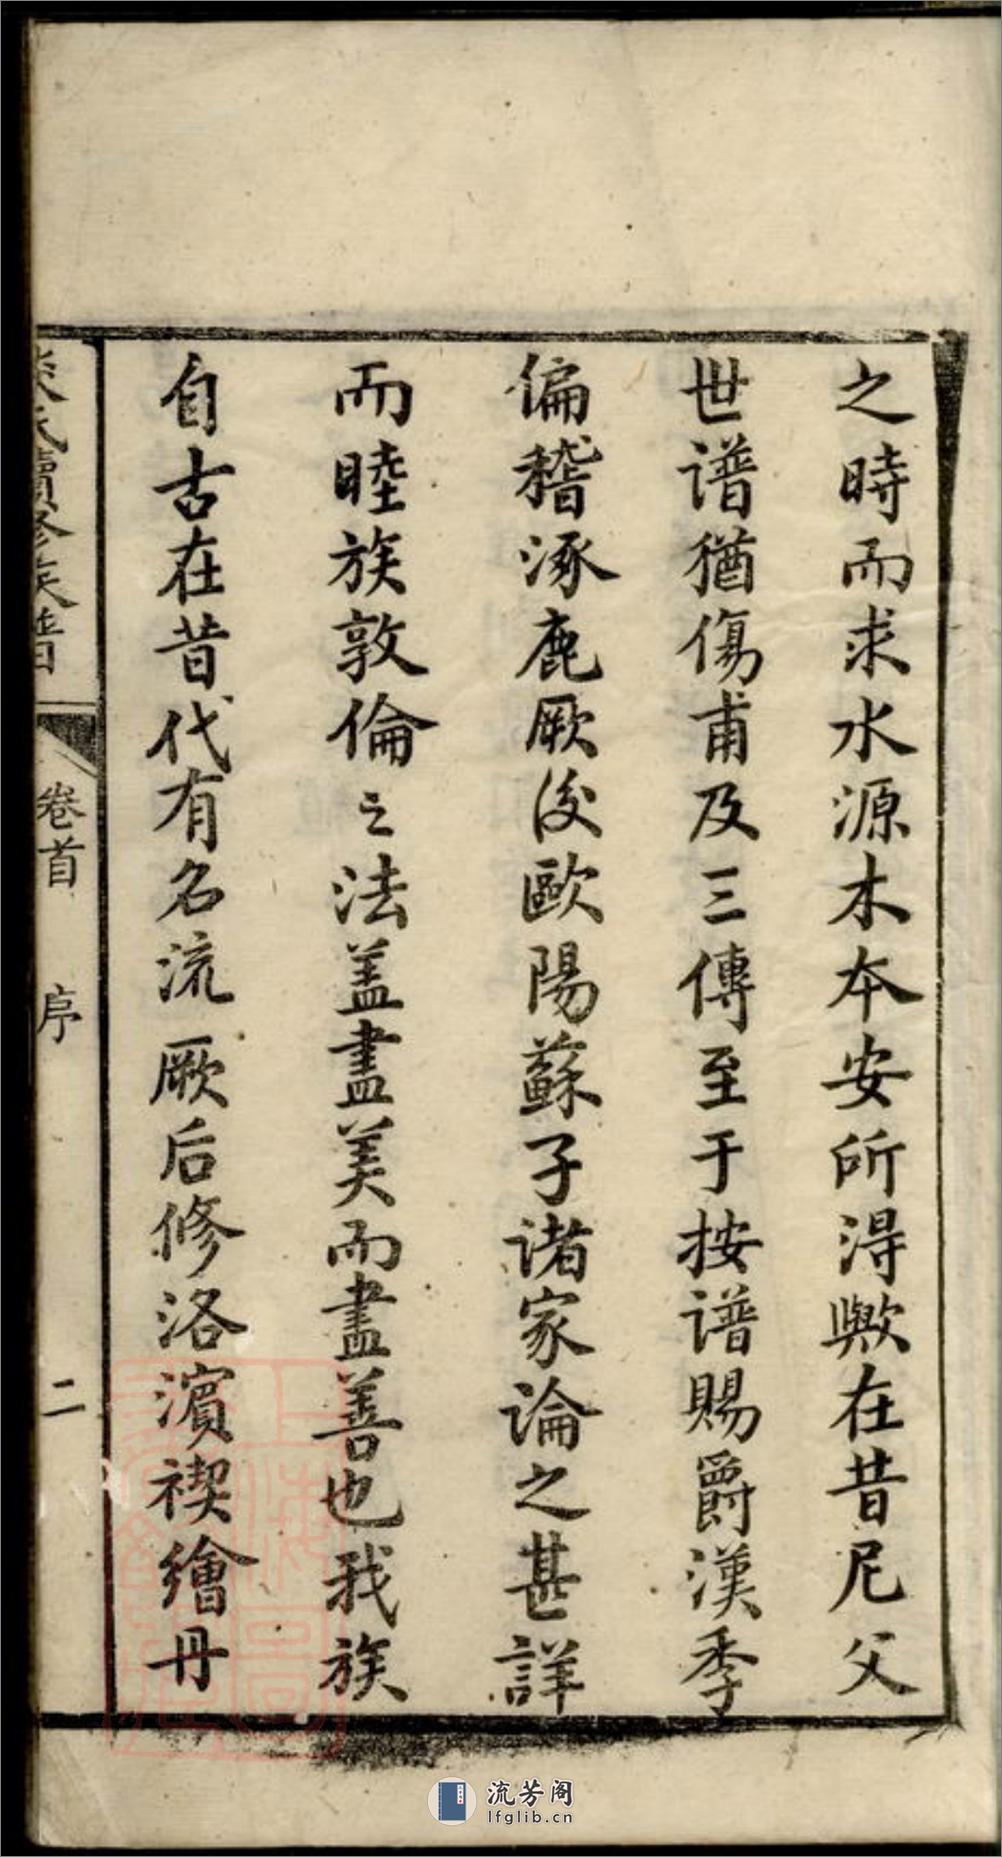 之時而求水源木本安所淂歟在昔尼父
世谱猶傷甫及三傳至于按谱賜爵漢季
偏稽涿鹿厥後歐陽蘇子诸家論之甚詳
而睦族敦倫之法盖盡美而盡善也我族
自古在昔代有名流厥后修洛濱禊繪丹
氏續修族譜
卷首 序 二
流芳阁
lfglib.cn